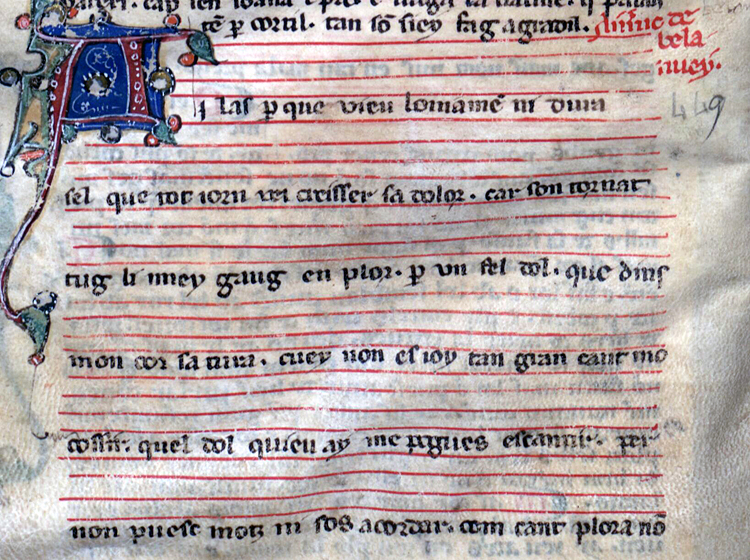 tē ꝑ cortil. tan sō siey fag agradil. Aimͨ de
bela
nuey.
A i las ꝑ que vieu loniamē ni dura
449
sel que tot iorn vei creisser sa dolor. car son tornat
tug li miey gaug en plor. ꝑ vn fel dol. que dins
mon cor satura. cuey non es ioy tan gran cant mo
cossir. quel dol quieu ay me pogues escantir. per
non puesc motz ni sos acordar. com cant plora nō